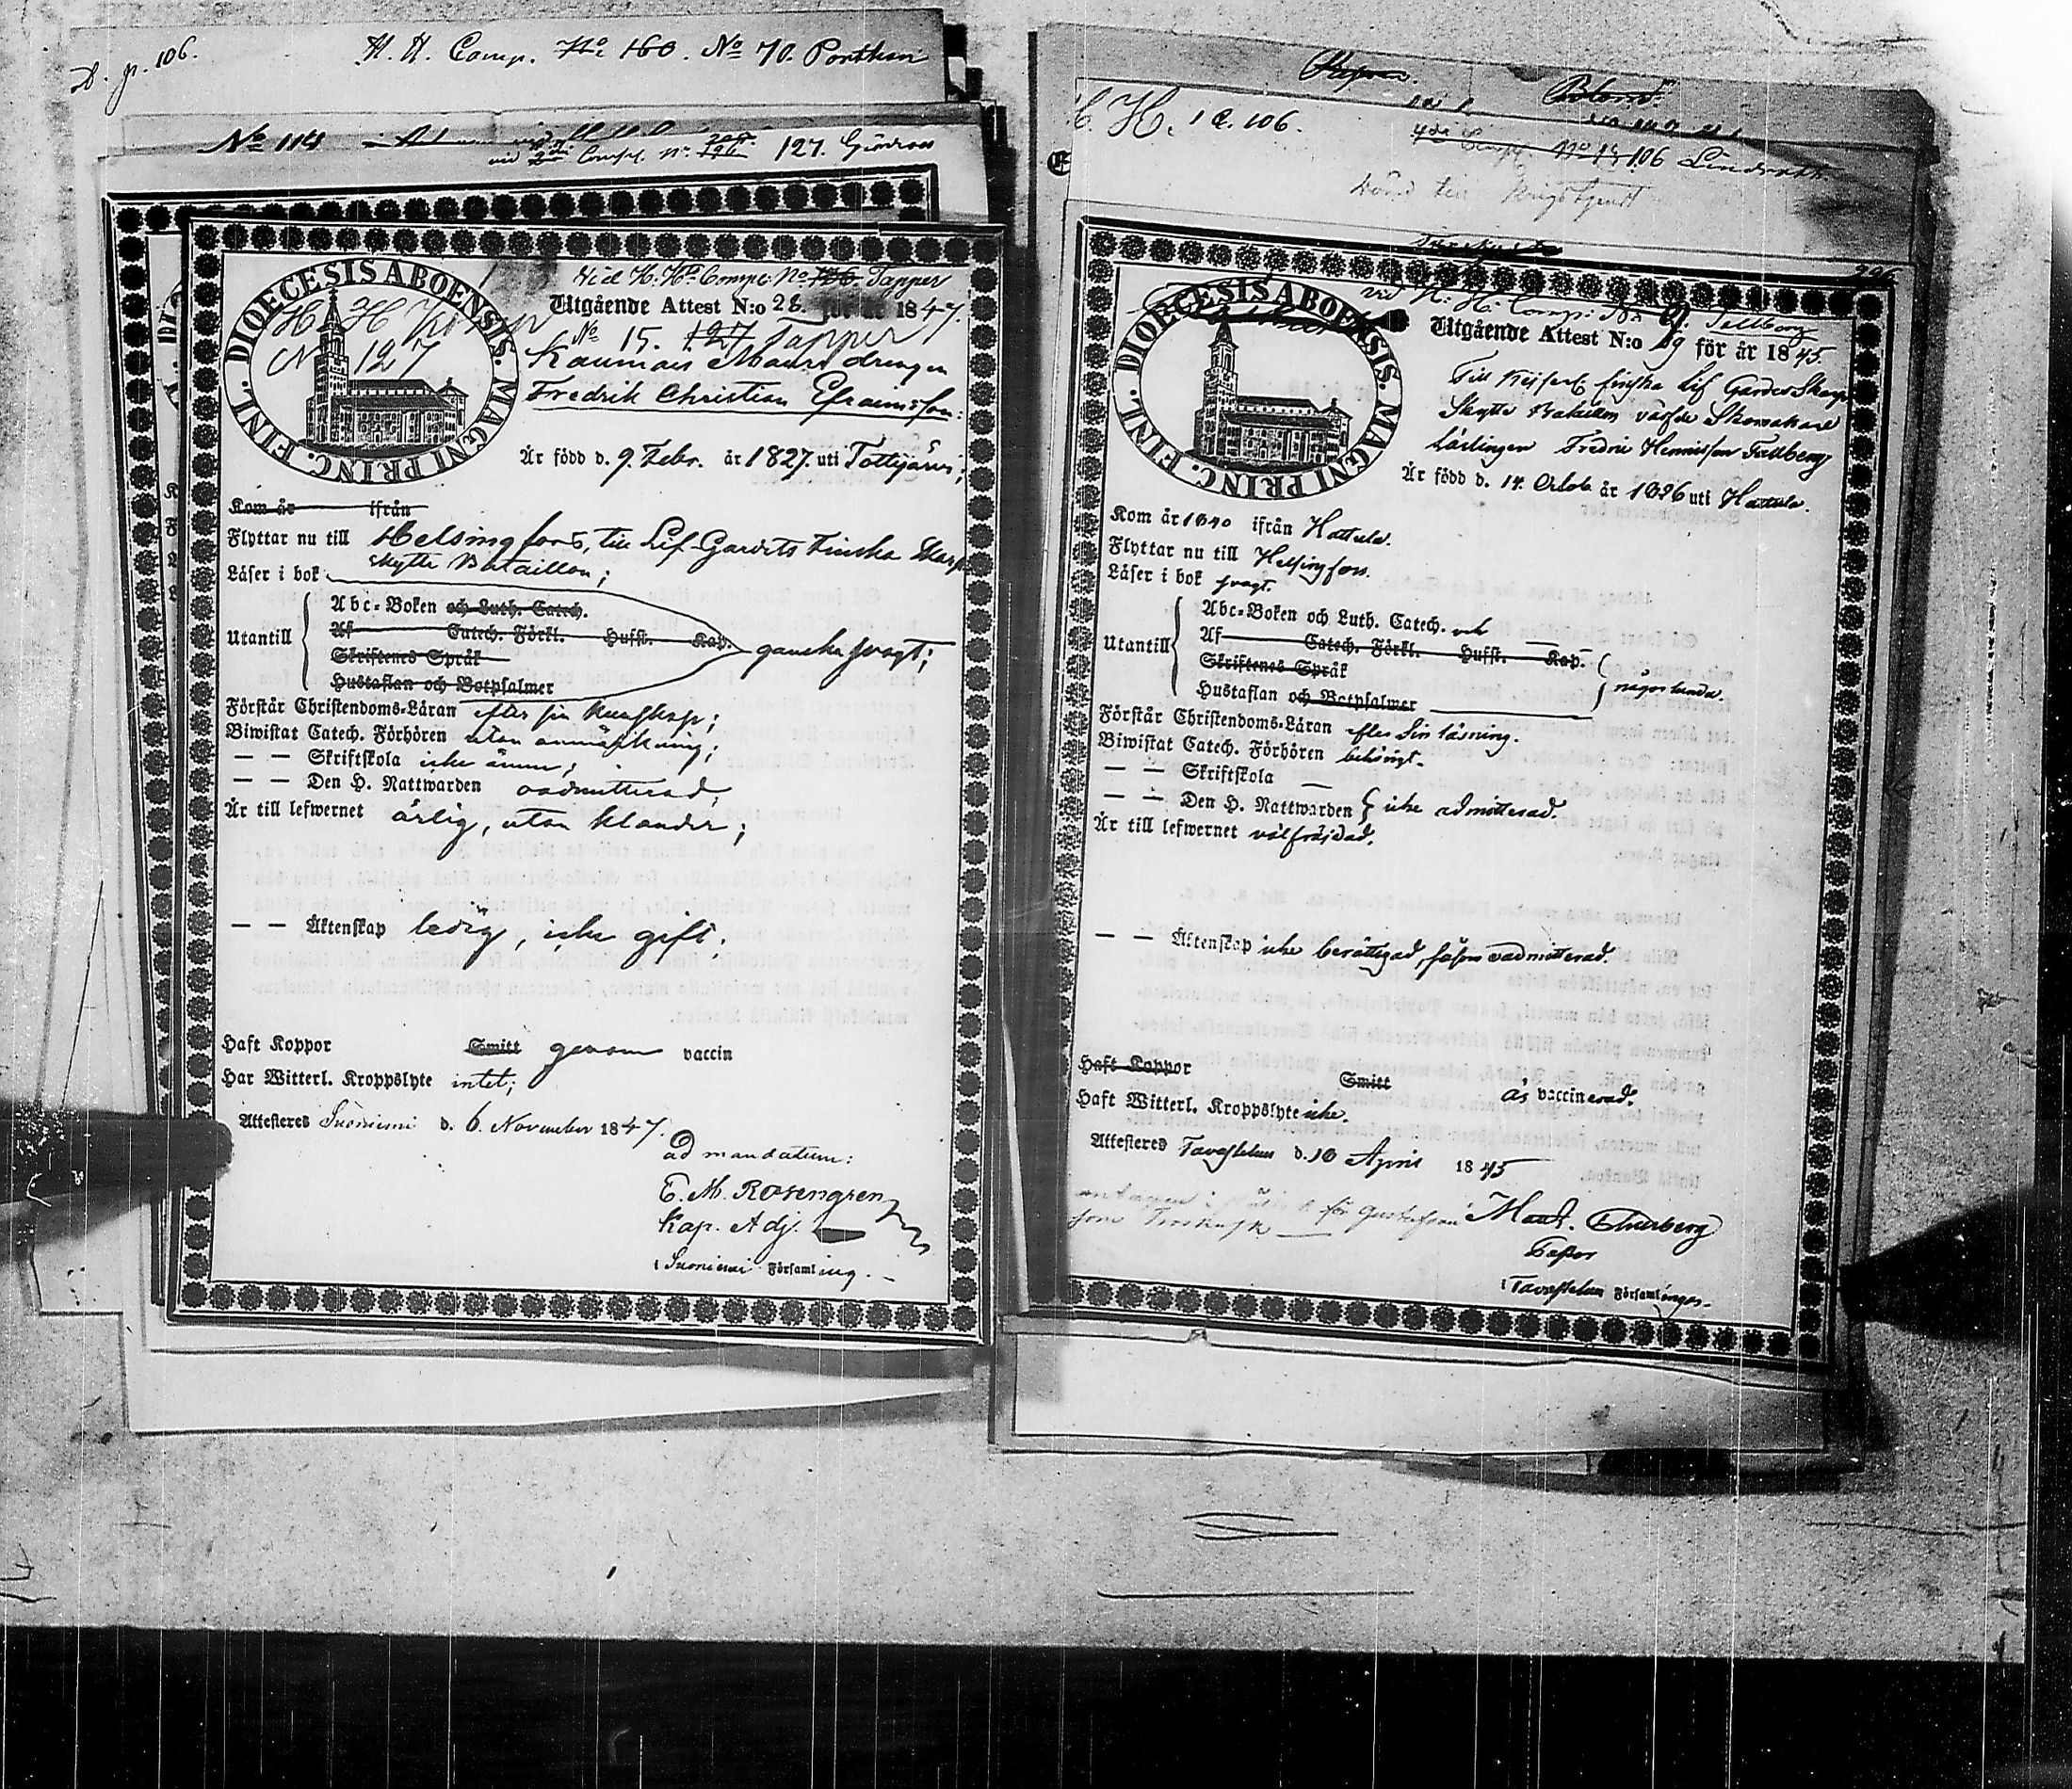 D. p. 106.
H. H. Comp. No 160. No 70. Porthan
No 114
vid 2dra Comp. No 196 127.
DIOECESIS ABOENSIS. MAGNI PRINC. FINL.
H H Komp
N 127
Vid H. Hs Comp: No 126. Tapper
Utgående Attest N:o 28. för år 1847.
No 15. 127 Tapper
Kaumais Måurs drengen
Fredrik Christian Efraimsson:
Är född d. 9. Febr. år 1827. uti Tottijärvi;
Kom år ifrån
Flyttar nu till Helsingfors, till Lif-Gardets Finska Skarp
skytte Bataillon;
Läser i bok
Utantill
Abc-Boken och Luth. Catech.
Af Catech. Förkl. Hufst. Kap.
Skriftenes Språk
Hustaflan och Botpsalmer
ganska svagt;
Förstår Christendoms-Läran efter sin kunskap;
Biwistat Catech. Förhören utan anmärkning;
— — Skriftskola icke ännu;
— — Den H. Nattwarden oadmitterad;
Är till lefwernet ärlig, utan klander;
— — Äktenskap ledig, icke gift;
Haft Koppor Smitt genom vaccin
Har Witterl. Kroppslyte intet;
Attesteres Suoniemi d. 6. November 1847.
Ad mandatum:
E. M. Rosengren
Kap. Adj.
i Suoniemi Församling.
H. H. 1 C. 106.
4de Comp. No 13 106 Lindroth
DIOECESIS ABOENSIS. MAGNI PRINC. FINL.
vid H. H. Comp: No 9. Tallberg
Utgående Attest N:o 19 för år 1845.
Till Kejserl. finska Lif Gardes Skarp
Skytte Bataillon värfde Skomakare
Lärlingen Fredric Henricsson Tallberg
Är född d. 14. Octob. år 1826 uti Hattula.
Kom år 1840 ifrån Hattula.
Flyttar nu till Helsingfors.
Läser i bok svagt.
Utantill
Abc-Boken och Luth. Catech. och
Af Catech. Förkl. Hufst. Kap.
Skriftenes Språk
Hustaflan och Botpsalmer
någorlunda.
Förstår Christendoms-Läran efter Sin läsning.
Biwistat Catech. Förhören behörigt.
— — Skriftskola —
— — Den H. Nattwarden icke admitterad.
Är till lefwernet välfräjdad.
— — Äktenskap icke berättigad, såsom oadmitterad.
Haft Koppor Smitt är vaccinerad.
Haft Witterl. Kroppslyte icke.
Attesteres Tavastehus d. 10 April 1845
för Gustafsson
Math. Thurberg
Pastor
i Tavastehus Församlingar.